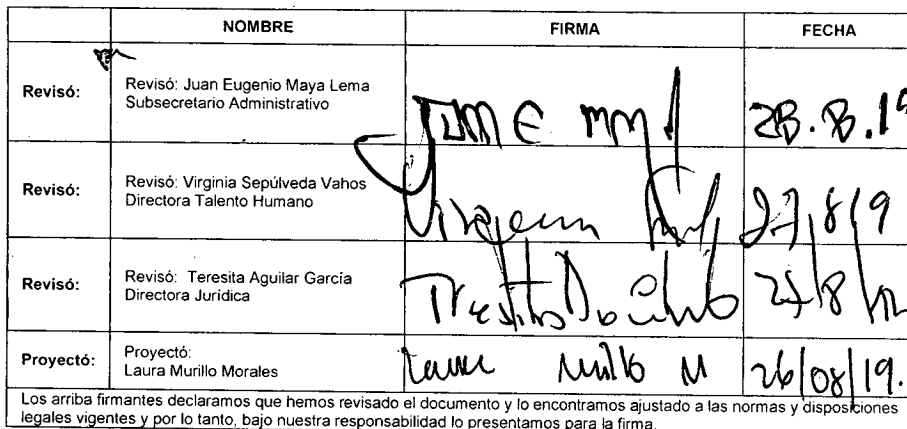 NOMBRE FIRMA FECHA
Revisó: Revisó: Juan Eugenio Maya Lema
Subsecretario Administrativo
28.8.19
Revisó: Revisó: Virginia Sepúlveda Vahos
Directora Talento Humano
27/8/19
Revisó: Revisó: Teresita Aguilar García
Directora Jurídica
Proyectó: Proyectó:
Laura Murillo Morales
Laura Murillo M 26/08/19.
Los arriba firmantes declaramos que hemos revisado el documento y lo encontramos ajustado a las normas y disposiciones
legales vigentes y por lo tanto, bajo nuestra responsabilidad lo presentamos para la firma.